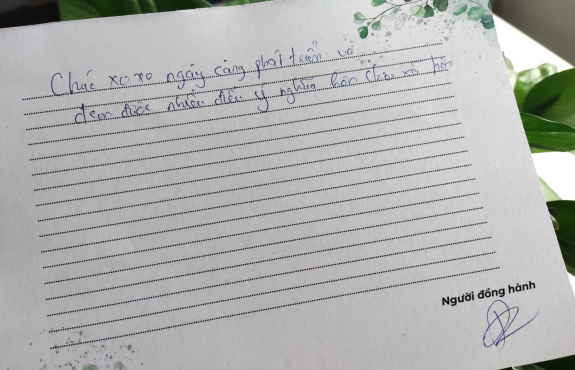 Chúc xoxo ngày càng phát triển và
đem được nhiều điều ý nghĩa hơn cho xã hội
Người đồng hành